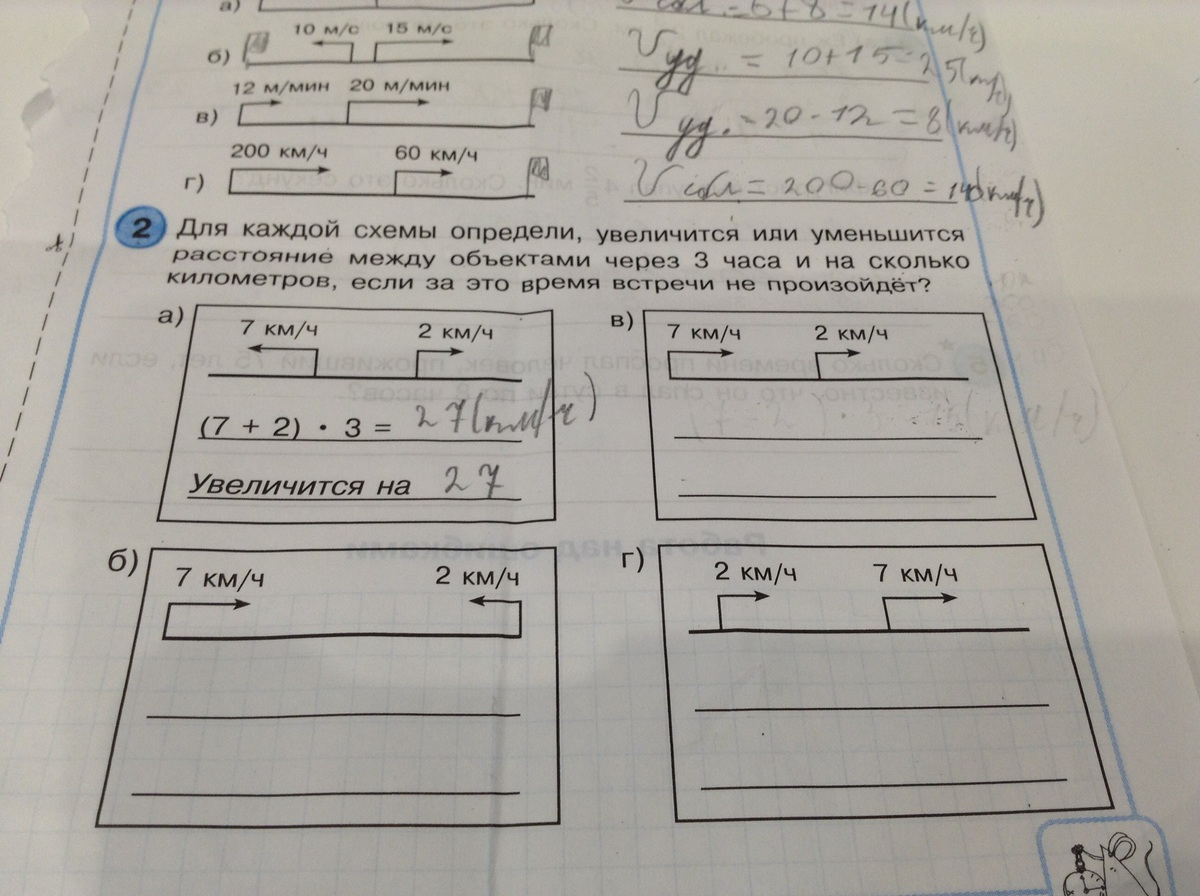 а)
Vсбл = 6+8 = 14(км/ч)
10 м/с 15 м/с
б)
Vуд. = 10+15=25(м/с)
12 м/мин 20 м/мин
в)
Vуд. = 20-12 = 8(км/ч)
200 км/ч 60 км/ч
г)
Vсбл = 200-60 = 140(км/ч)
2 Для каждой схемы определи, увеличится или уменьшится
расстояние между объектами через 3 часа и на сколько
километров, если за это время встречи не произойдёт?
а)
7 км/ч 2 км/ч
(7 + 2) · 3 = 27(км/ч)
Увеличится на 27
в)
7 км/ч 2 км/ч
б)
7 км/ч 2 км/ч
г)
2 км/ч 7 км/ч